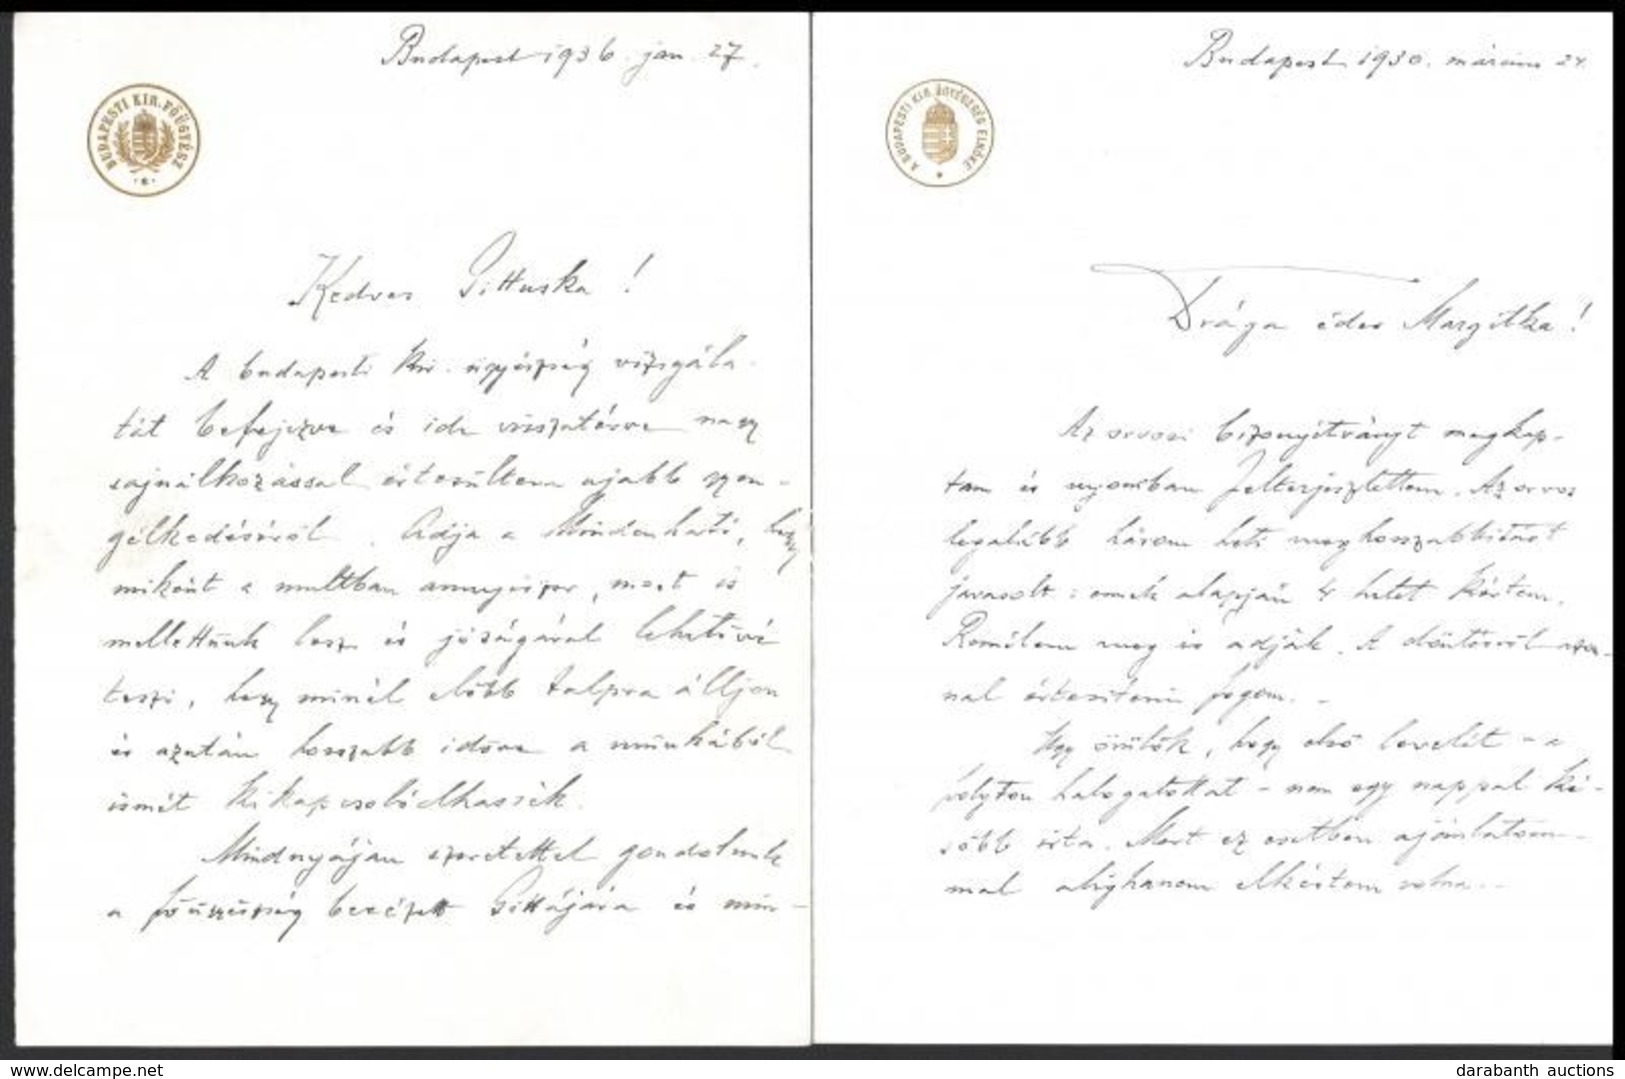 Budapest 1936. jan. 27.
BUDAPESTI KIR. FŐÜGYÉSZ
Kedves Gittuska!
A budapesti kir. ügyészség vizsgála-
tát befejezve és ide visszatérve nagy
sajnálkozással értesültem ujabb gyen-
gélkedéséről. Adja a Mindenható, hogy
miként a multban annyiszor, most is
mellettünk lesz és jóságával lehetővé
teszi, hogy minél előbb talpra álljon
és azután hosszabb időre a munkából
ismét kikapcsolódhassék.
Mindnyájan szeretettel gondolunk
a főügyészség beczézett Gittájára és min-
Budapest 1930. március 24.
A BUDAPESTI KIR. ÜGYÉSZSÉG ELNÖKE
Drága édes Margitka!
Az orvosi bizonyítványt megkap-
tam és nyomban felterjesztettem. Az orvos
legalább három heti meghosszabbítást
javasolt: ennek alapján 4 hetet kértem.
Remélem meg is adják. A döntésről azon-
nal értesíteni fogom. -
Ugy örülök, hogy első levelét - a
folyton halogatottat - nem egy nappal ké-
sőbb írta. Mert ez esetben ajánlatom-
mal alighanem elkéstem volna. -
www.delcampe.net
darabanth auctions